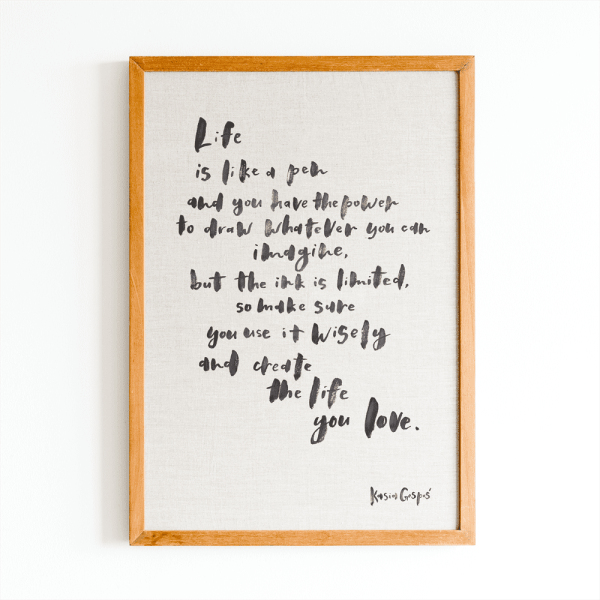 Life
is like a pen
and you have the power
to draw whatever you can
imagine,
but the ink is limited,
so make sure
you use it wisely
and create
the life
you love.
Kasia Gospoś